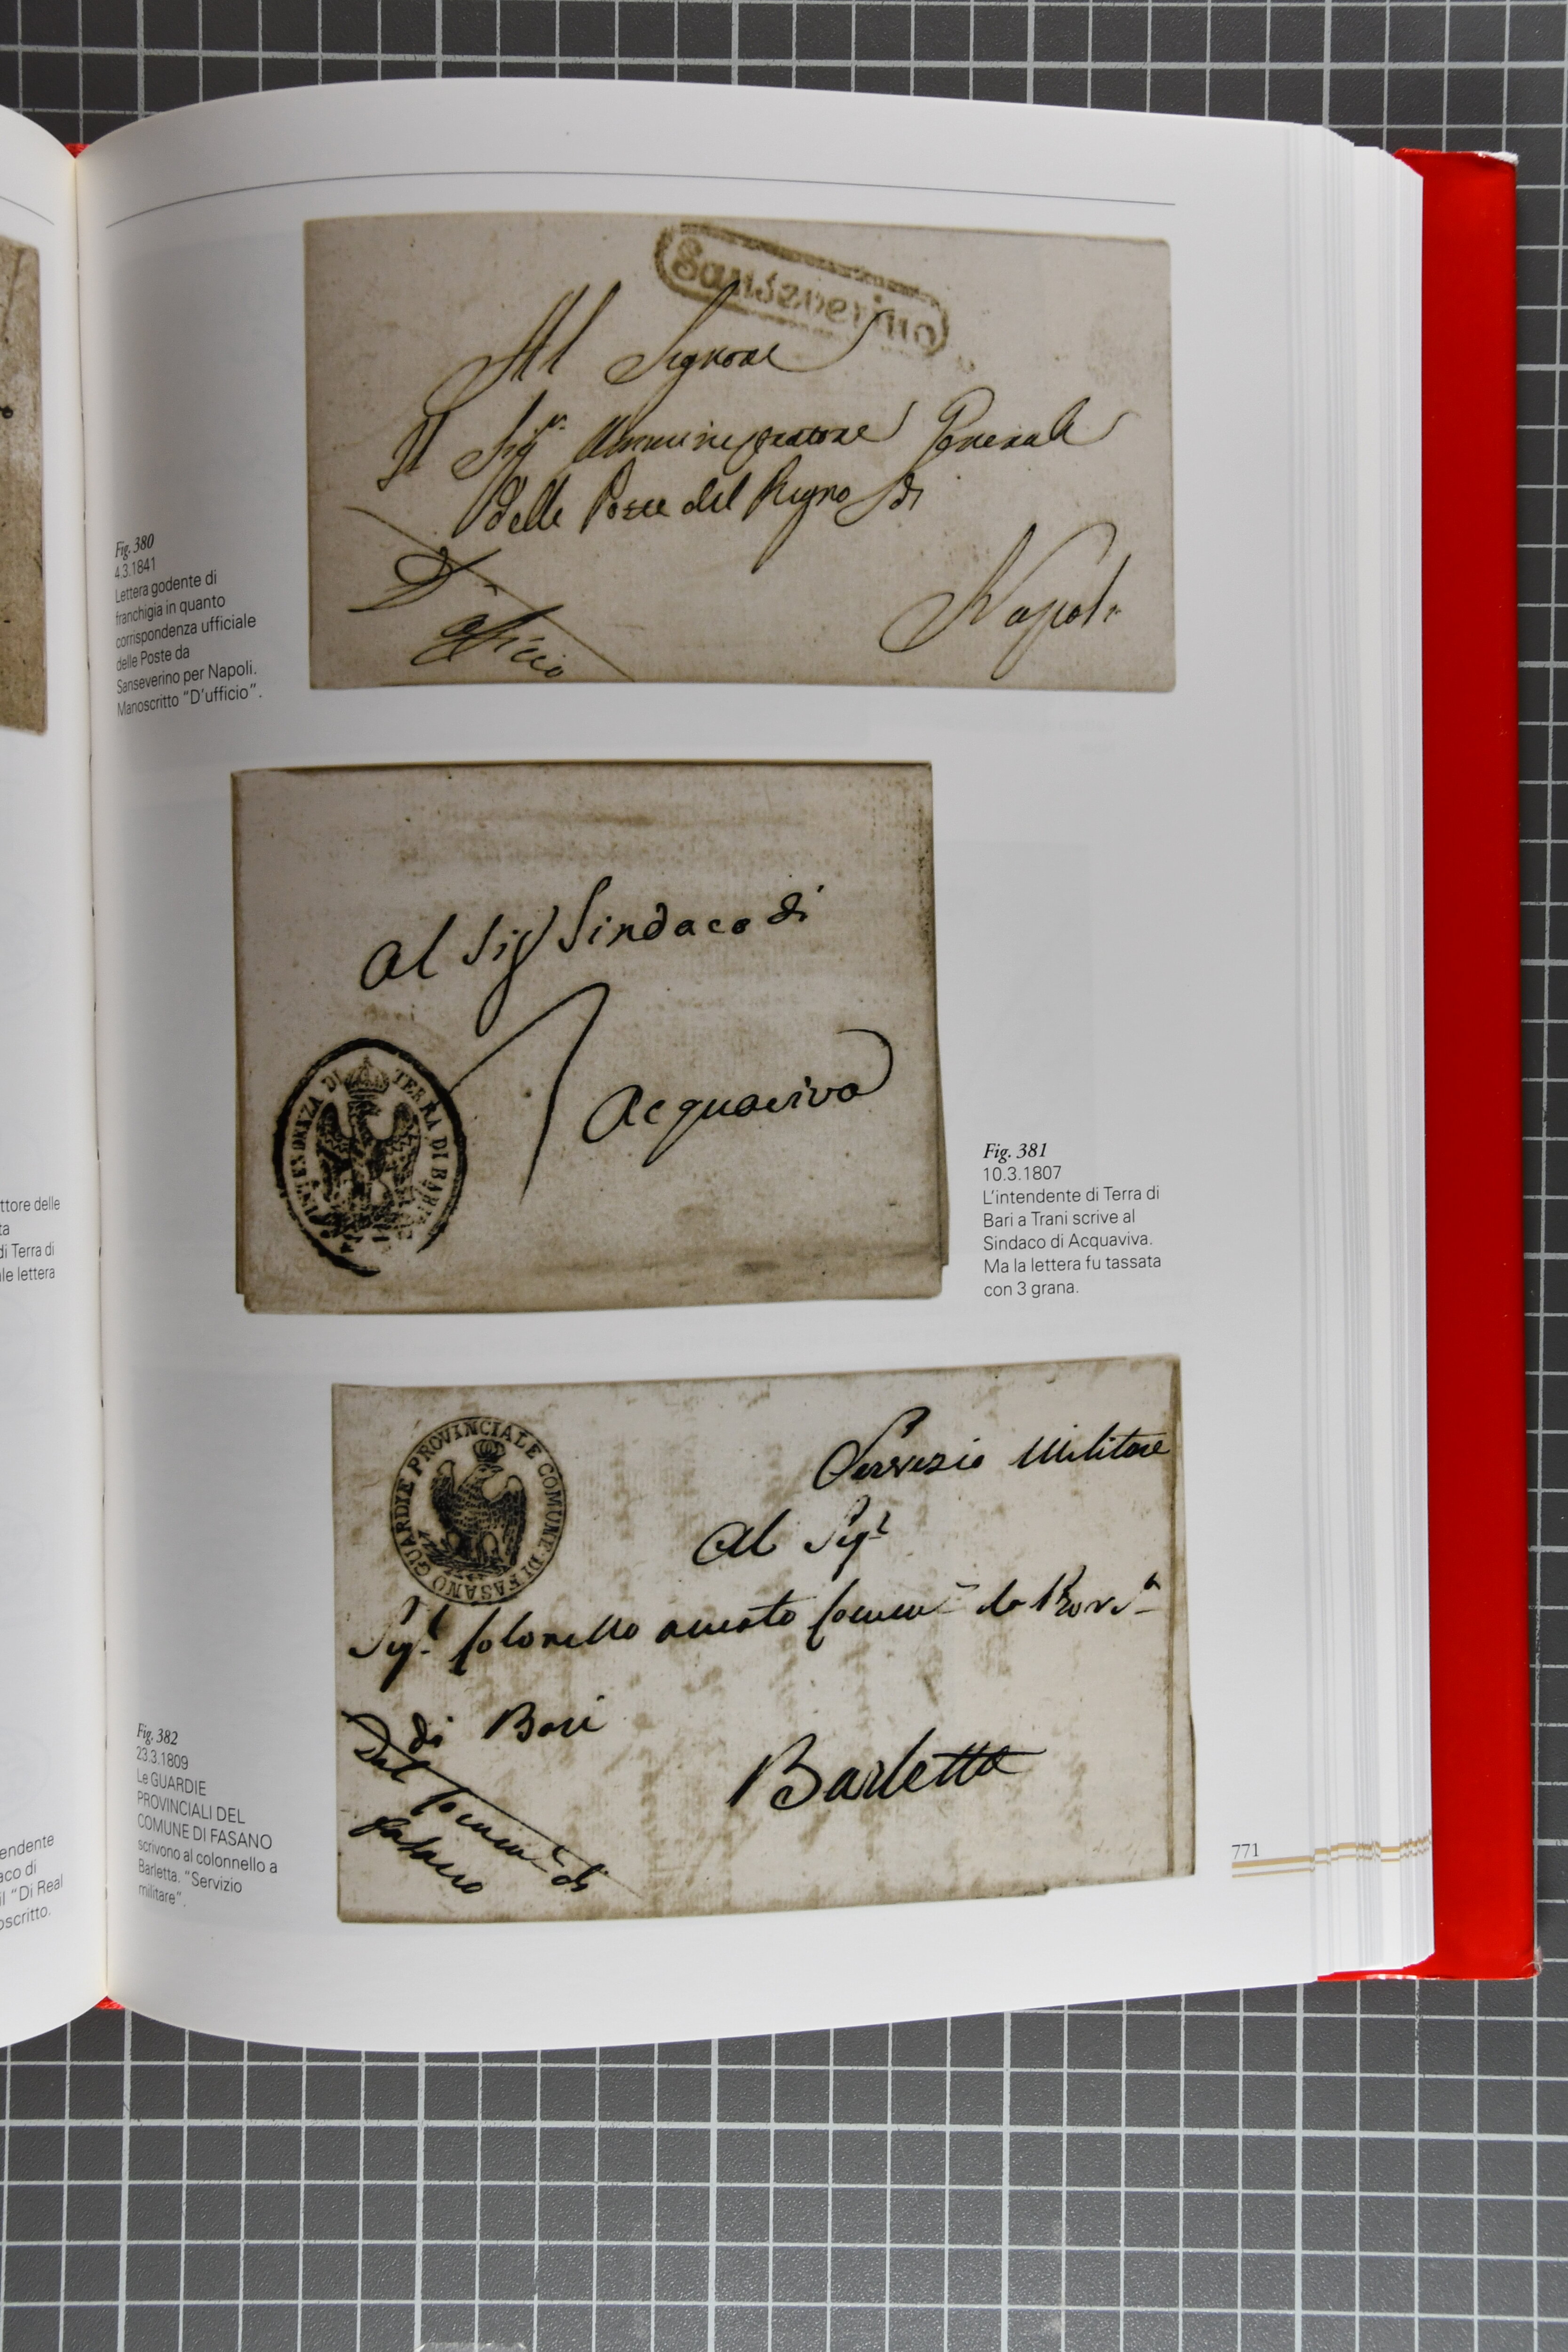 Sanseverino
Al Signore
Il Sig.r Amministratore Generale
delle Poste del Regno di
Napoli
D'
officio
Fig. 380
4.3.1841
Lettera godente di
franchigia in quanto
corrispondenza ufficiale
delle Poste da
Sanseverino per Napoli.
Manoscritto "D'ufficio".
al Sig Sindaco di
Acquaviva
INTENDENZA DI TERRA DI BARI
Fig. 381
10.3.1807
L'intendente di Terra di
Bari a Trani scrive al
Sindaco di Acquaviva.
Ma la lettera fu tassata
con 3 grana.
GUARDIE PROVINCIALE COMUNE DI FASANO
Servizio Militare
Al Sig.r
Sig.r Colonello Comm.te la Prov.a
di Bari
Barletta
Dal Comm.te di
Fasano
Fig. 382
23.3.1809
Le GUARDIE
PROVINCIALI DEL
COMUNE DI FASANO
scrivono al colonnello a
Barletta. "Servizio
militare".
771
ttore delle
ta
di Terra di
ale lettera
endente
aco di
il "Di Real
oscritto.